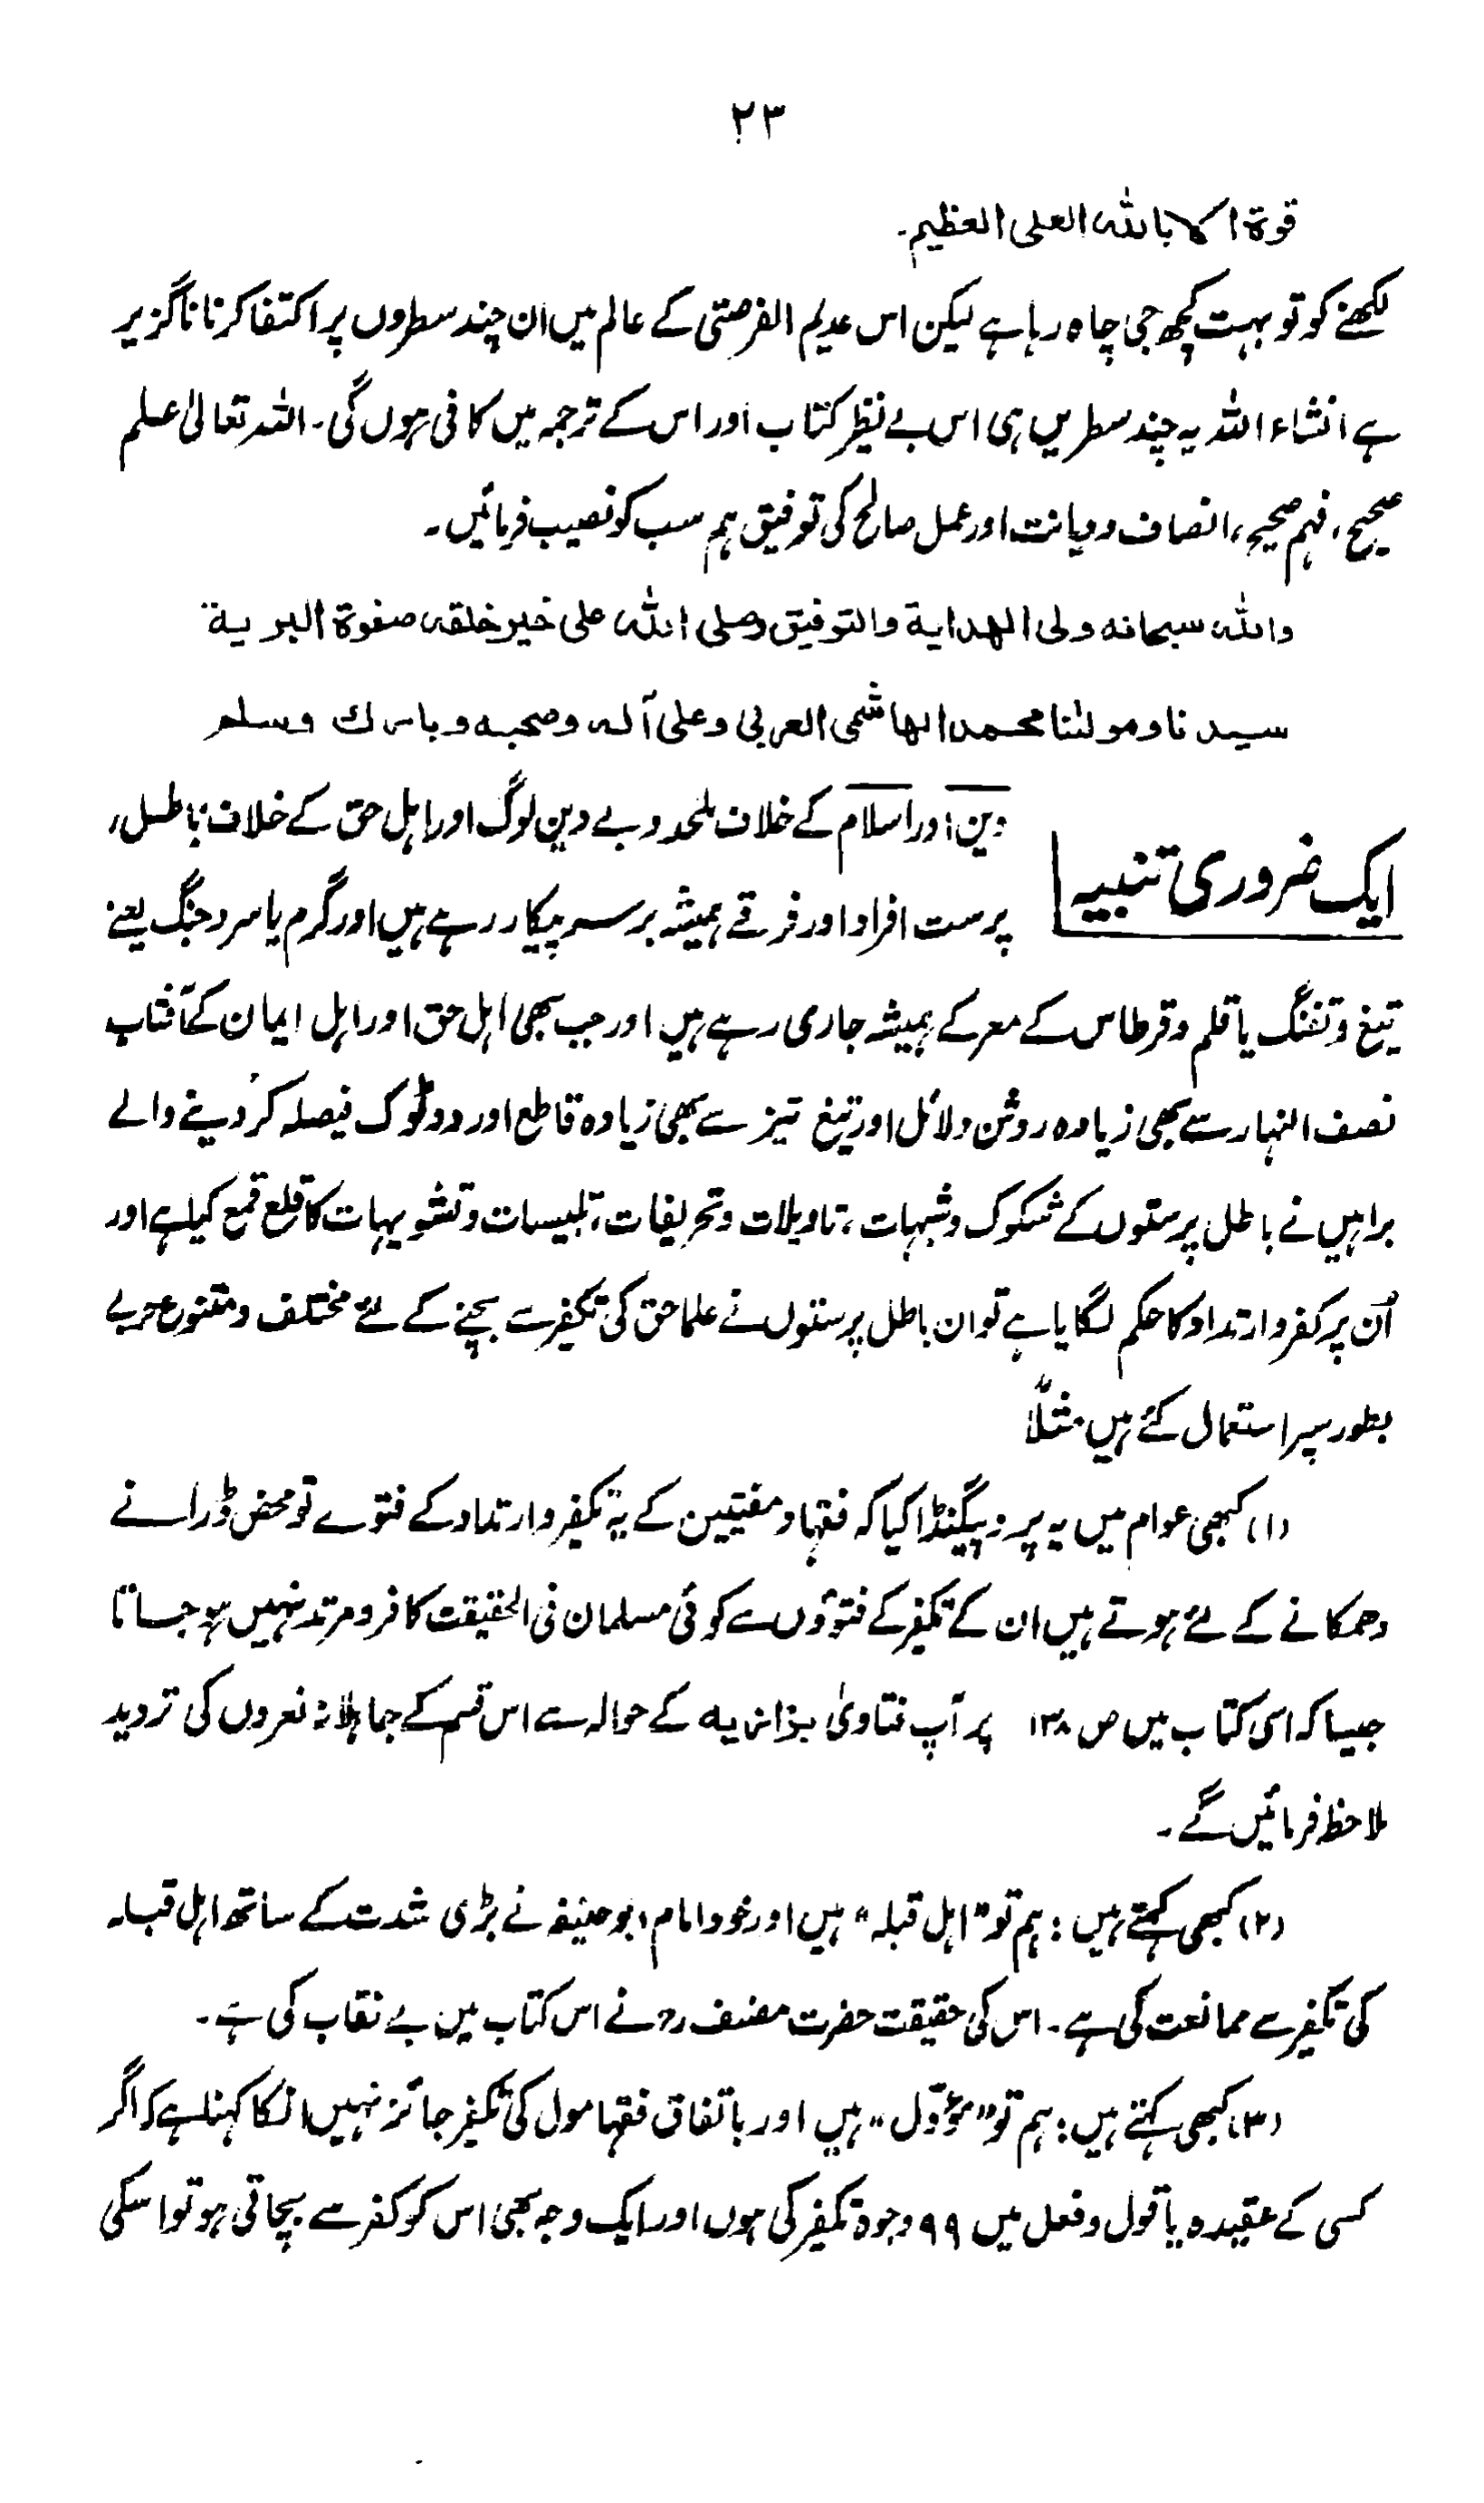 ۲۳
قوة الا بالله العلی العظیم۔
لکھنے کو تو بہت کچھ جی چاہ رہا ہے لیکن اس عدیم الفرصتی کے عالم میں ان چند سطروں پر اکتفا کرنا ناگزیر
ہے انشاء اللہ یہ چند سطریں ہی اس بے نظیر کتاب اور اس کے ترجمہ میں کافی ہوں گی۔ اللہ تعالیٰ علم
صحیح، فہم صحیح، انصاف و دیانت اور عمل صالح کی توفیق ہم سب کو نصیب فرمائیں۔
والله سبحانه ولی الهدایة والتوفیق وصلی الله علی خیر خلقه صفوة البریة
سیدنا ومولٰنا محمد الهاشمی العربی وعلی آله وصحبه وبارك وسلم
ایک ضروری تنبیہ
دین اور اسلام کے خلاف ملحد و بے دین لوگ اور اہل حق کے خلاف باطل،
پرست افراد اور فرقے ہمیشہ برسر پیکار رہے ہیں اور گرم یا سرد جنگ یعنے
تیغ و تفنگ یا قلم و قرطاس کے معرکے ہمیشہ جاری رہے ہیں اور جب بھی اہل حق اور اہل ایمان کے آفتاب
نصف النہار سے بھی زیادہ روشن دلائل اور تیغ تیز سے بھی زیادہ قاطع اور دو ٹوک فیصلہ کر دینے والے
براہیں نے باطل پرستوں کے شکوک و شبہات، تاویلات و تحریفات، تلبیسات و تشویہات کا قلع قمع کیا ہے اور
اُن پر کفر و ارتداد کا حکم لگایا ہے تو ان باطل پرستوں نے علما حق کی تکفیر سے بچنے کے لئے مختلف و متنوع حربے
بطور سپر استعمال کئے ہیں مثلاً
(۱) کبھی عوام میں یہ پروپیگنڈا کیا کہ فقہا و مفتیین کے یہ تکفیر و ارتداد کے فتوے تو محض ڈرانے
دھمکانے کے لئے ہوتے ہیں ان کے تکفیر کے فتوؤں سے کوئی مسلمان فی الحقیقت کافر و مرتد نہیں ہو جاتا
جیسا کہ اسی کتاب میں ص ۱۳۸ پر آپ فتاویٰ بزازیه کے حوالہ سے اس قسم کے جاہلانہ نعروں کی تردید
ملاحظہ فرمائیں گے۔
(۲) کبھی کہتے ہیں: ہم تو "اہل قبلہ" ہیں اور خود امام ابوحنیفہ نے بڑی شدت کے ساتھ اہل قبلہ
کی تکفیر سے ممانعت کی ہے۔ اس کی حقیقت حضرت مصنف رح نے اس کتاب میں بے نقاب کی ہے۔
(۳) کبھی کہتے ہیں: ہم تو "مؤوّل" ہیں اور باتفاق فقہا مول کی تکفیر جائز نہیں انکا کہنا ہے کہ اگر
کسی کے عقیدہ یا قول و فعل میں ۹۹ وجوہ تکفیر کی ہوں اور ایک وجہ بھی اس کو کفر سے بچاتی ہو تو اسکی